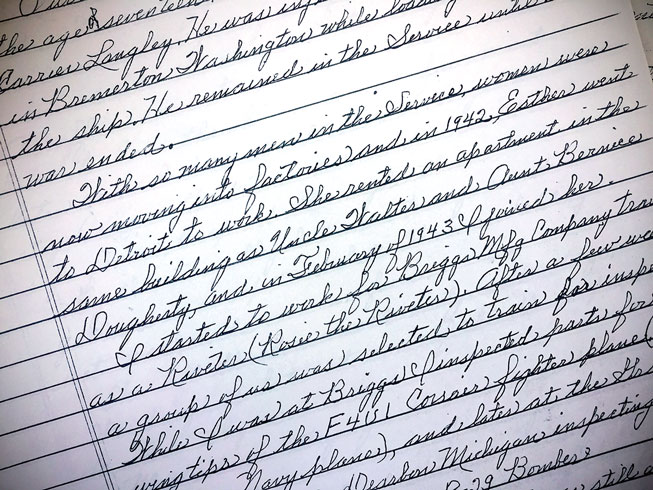 the age of seventeen
Carrier Langley. He was
in Bremerton Washington while
the ship. He remained in the Service until
was ended.
With so many men in the Service, women were
now moving into factories and in 1942, Esther went
to Detroit to work. She rented an apartment in the
same building as Uncle Walter and Aunt Bernice
Dougherty, and in February of 1943 I joined her.
I started to work for Briggs Mfg Company
as a Riveter (Rosie the Riveter). After a few
a group of us was selected to train for
While I was at Briggs I inspected parts for
wing tips of the F4U1 Corsair fighter plane (
Navy plane), and later at the
Dearborn Michigan inspecting
Bomber.
still